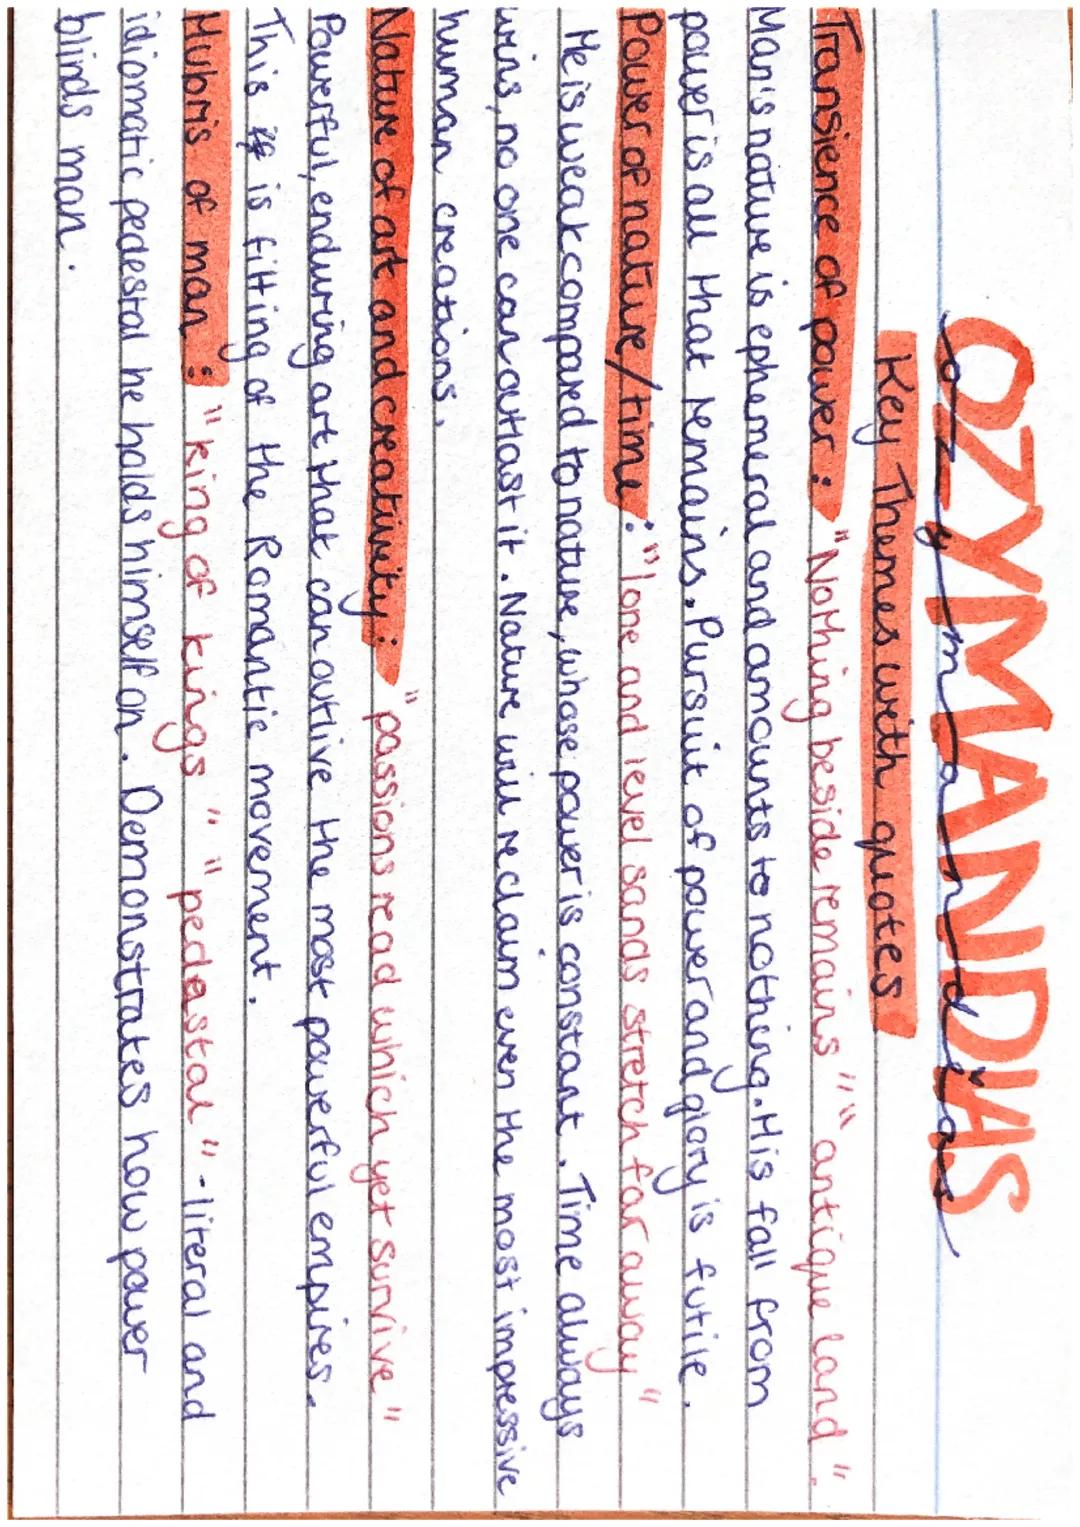 OZYMANDIAS
ozymandias
Key Themes with quotes
Transience of power: "Nothing beside remains" "antique land".
Man's nature is ephemeral and amounts to nothing. His fall from
power is all that remains. Pursuit of power and glory is futile.
Power of nature/time: "lone and level sands stretch far away"
He is weak compared to nature, whose power is constant. Time always
wins, no one can outlast it. Nature will reclaim even the most impressive
human creations.
Nature of art and creativity: "passions read which yet survive"
Powerful, enduring art that can outlive the most powerful empires.
This is fitting of the Romantic movement.
Hubris of man: "king of kings". "pedestal" - literal and
idiomatic pedestal he holds himself on. Demonstrates how power
blinds man.